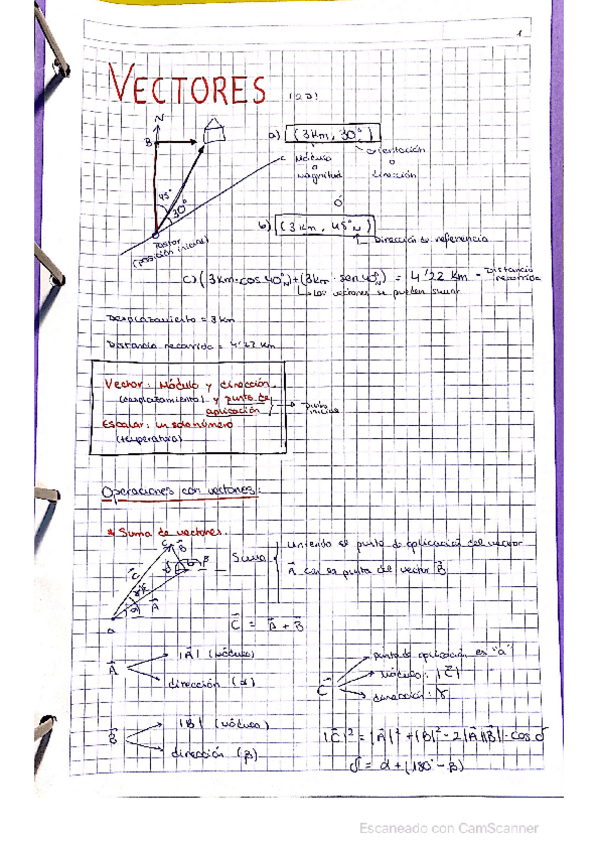 1
VECTORES
N
B
a) (3 Km, 30°)
orientación
o
dirección
módulo
o
magnitud
45°
30°
ó
b) (3 Km, 45°N)
Dirección de referencia
(posición inicial)
c) (3 Km·cos 40°N)+(3 Km · sen 40°N) = 4'22 Km
Distancia
recorrida
Los vectores se pueden sumar
Desplazamiento = 3 Km
Distancia recorrida = 4'22 Km
Vector: Módulo y dirección
(desplazamiento) y punto de
aplicación
punto
inicial
Escalar: un solo número
(temperatura)
Operaciones con vectores:
* Suma de vectores.
Suma
uniendo el punto de aplicación del vector
A⃗ con el punto del vector B⃗
C⃗ = A⃗ + B⃗
A⃗
|A⃗| (módulo)
dirección (α)
C⃗
punto de aplicación es "a"
módulo: |C⃗|
dirección: γ
B⃗
|B⃗| (módulo)
dirección (β)
|C⃗|² = |A⃗|² + |B|² - 2|A⃗||B⃗|·cos δ
δ = α + (180° - β)
Escaneado con CamScanner